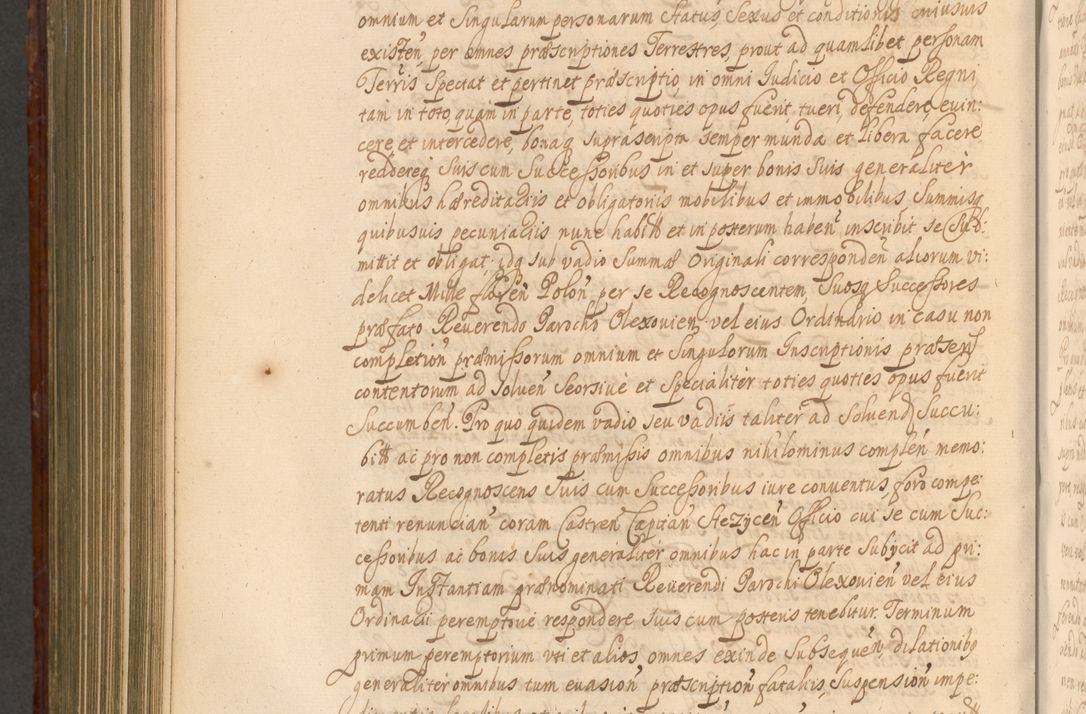 omnium et Singularum personarum Status Sexus et conditionis cuiusuis
existeń, per omnes præscriptiones Terrestres, prout ad quamlibet personam
Terris Spectat et pertinet præscriptio, in omni Iudicio et Officio Regni
tam in toto, quam in parte, toties quoties opus fuerit, tueri, defendere, euin:
cere, et intercedere, bonaq suprascripta semper munda et libera facere
reddereq; Suis cum Successoribus in et super bonis Suis generaliter
omnibus hæreditariis et obligatoriis mobilibus et immobilibus Summisq
quibusuis pecuniariis nunc habitt et in posterum habeń inscribit se Sub:
mittit et obligat; idq sub vadio Summæ Originali correspondeń aliorum vi:
delicet Mille floreń Poloń per se Recognoscentem, Suosq Successores
præfato Reuerendo Parocho Olexouień vel eius Ordinario in casu non
completioń præmissorum omnium et Singulorum Inscriptionis præsenť
contentorum ad soluen Seorsiue et Specialiter toties quoties opus fuerit
Succumbeń. Pro quo quidem vadio seu vadiis taliter ad Soluend Succu:
bitt ac pro non completis præmissis omnibus nihilominus compleń memo:
ratus Recognoscens Suis cum Successoribus iure conuentus foro compe:
tenti renuncian coram Castreń Capitań Stezyceń Officio cui se cum Suc:
cessoribus ac bonis Suis generaliter omnibus hac in parte Subycit ad pri:
mam Instantiam prænominati Reuerendi Parochi Olexouień vel eius
Ordinarii peremptorie respondere Suis cum posteris tenebitur. Terminum
primum peremptorium uti et alios omnes exinde Subsequeń dilationibq
generaliter omnibus tum euasioń præscriptioń fatalis, Suspensioń impe: